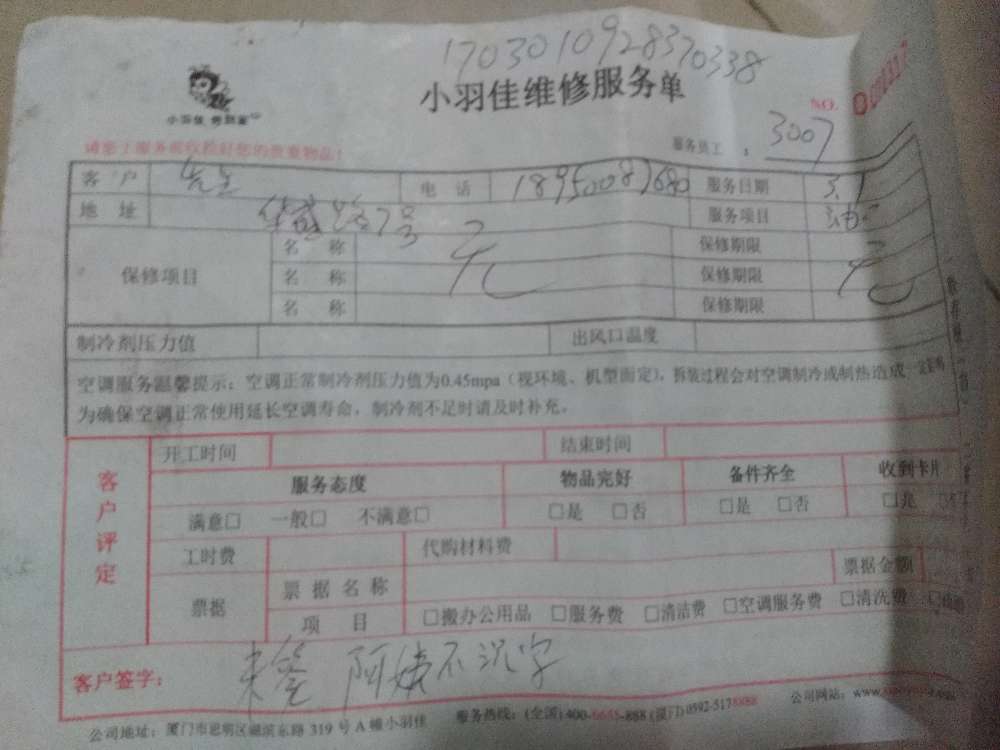 1703010928370338
小羽佳维修服务单
小羽佳
NO.
服务员工: 3007
客户 电话 18950087680 服务日期 3.1
地址 华盛路7号 服务项目
保修项目 名称 无 保修期限 无
名称 保修期限
名称 保修期限
制冷剂压力值 出风口温度
空调服务温馨提示:空调正常制冷剂压力值为0.45mpa(视环境、机型而定),拆装过程会对空调制冷或制热造成一定影响
为确保空调正常使用延长空调寿命,制冷剂不足时请及时补充。
客户评定
开工时间 结束时间
服务态度 物品完好 备件齐全 收到卡片
满意□ 一般□ 不满意□ □是 □否 □是 □否 □是
工时费 代购材料费
票据 票据名称 票据金额
项目 □搬办公用品 □服务费 □清洁费 □空调服务费 □清洗费
客户签字: 未签 阿姨不识字
公司地址:厦门市思明区湖滨东路319号A幢小羽佳 服务热线:(全国)400-6655-888 (厦门)0592-5178888 公司网站:www.